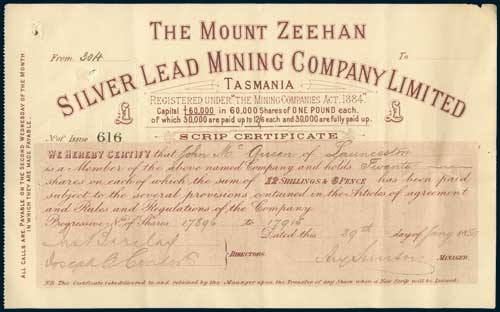 THE MOUNT ZEEHAN
From 3014
To
SILVER LEAD MINING COMPANY LIMITED
TASMANIA
REGISTERED UNDER "THE MINING COMPANIES ACT. 1884".
Capital £60,000 in 60,000 Shares of ONE POUND each.
of which 30,000 are paid up to 12/6 each and 30,000 are fully paid up.
£
£
No of Issue 616
SCRIP CERTIFICATE
WE HEREBY CERTIFY that John Mc Queen of Launceston
is a Member of the above named Company and holds Twenty
shares on each of which the sum of 12 SHILLINGS & 6 PENCE has been paid
subject to the several provisions contained in the Articles of agreement
and Rules and Regulations of the Company.
Progressive Nos of Shares 17896 to 17915
Dated this 29th day of Jany
DIRECTORS.
MANAGER.
NB This Certificate to be delivered to and retained by the Manager upon the Transfer of any Share when a New Scrip will be Issued.
ALL CALLS ARE PAYABLE ON THE SECOND WEDNESDAY OF THE MONTH
IN WHICH THEY ARE MADE PAYABLE.